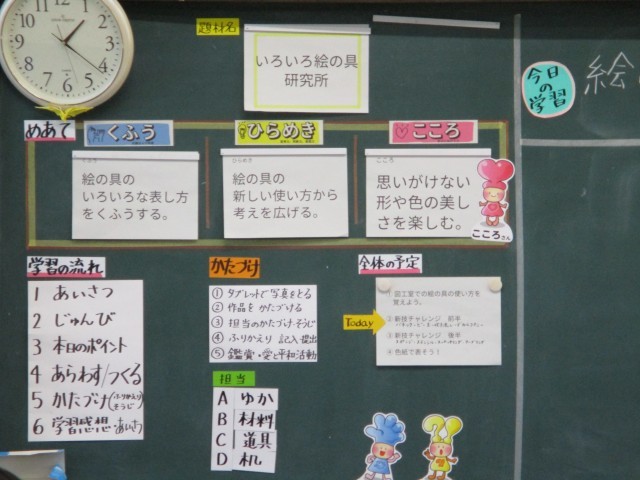 題材名
いろいろ絵の具
研究所
今日の学習
絵
めあて
くふう
ひらめき
こころ
くふう
絵の具の
いろいろな表し方
をくふうする。
ひらめき
絵の具の
新しい使い方から
考えを広げる。
こころ
思いがけない
形や色の美し
さを楽しむ。
こころさん
学習の流れ
1 あいさつ
2 じゅんび
3 本日のポイント
4 あらわす/つくる
5 かたづけ(ふりかえり そうじ)
6 学習感想 あいさつ
かたづけ
① タブレットで写真をとる
② 作品をかたづける
③ 担当のかたづけ・そうじ
④ ふりかえり 記入・提出
⑤ 鑑賞・愛と平和活動
担当
A ゆか
B 材料
C 道具
D 机
全体の予定
① 図工室での絵の具の使い方を
覚えよう。
Today
② 新技チャレンジ 前半
③ 新技チャレンジ 後半
④ 色紙で表そう!
12
1
2
3
4
5
6
7
8
9
10
11